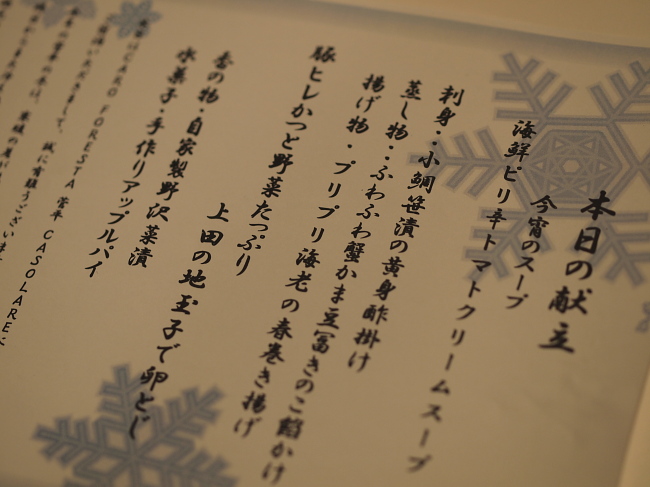 本日の献立
今宵のスープ
海鮮ピリ辛トマトクリームスープ
刺身・・小鯛笹漬の黄身酢掛け
蒸し物・・ふわふわ蟹かま豆冨きのこ餡かけ
揚げ物・プリプリ海老の春巻き揚げ
豚ヒレかつと野菜たっぷり
上田の地玉子で卵とじ
香の物・自家製野沢菜漬
水菓子・手作りアップルパイ
FORESTA
CASOLAREに
誠に有難うございま